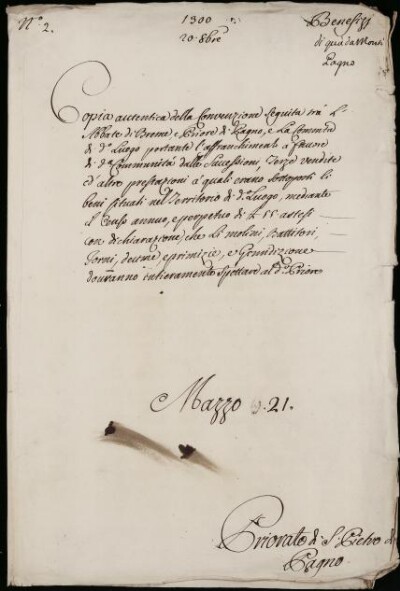 N.º 2.
1300
20 8bre
Benefizj
di qua da Monti
Pagno
Copia autentica della Convenzione seguita trà L'
Abbate di Breme, e Priore di Pagno, e La Comunità
di d.º Luogo portante l'affranchimento a favore
di d.ª Communità dalle Successioni, Terze vendite
ed altre prestazioni à quali erano sottoposti li
beni situati nel Territorio di d.º Luogo, mediante
il Censo annuo, e perpetuo di 55 astesi
con dichiarazione, che Li molini, Battitori,
Forni, decime e primizie, e Giurisdizione
dovranno intieramente spettare al d.º Priore
Mazzo 21.
Priorato di S. Pietro di
Pagno.